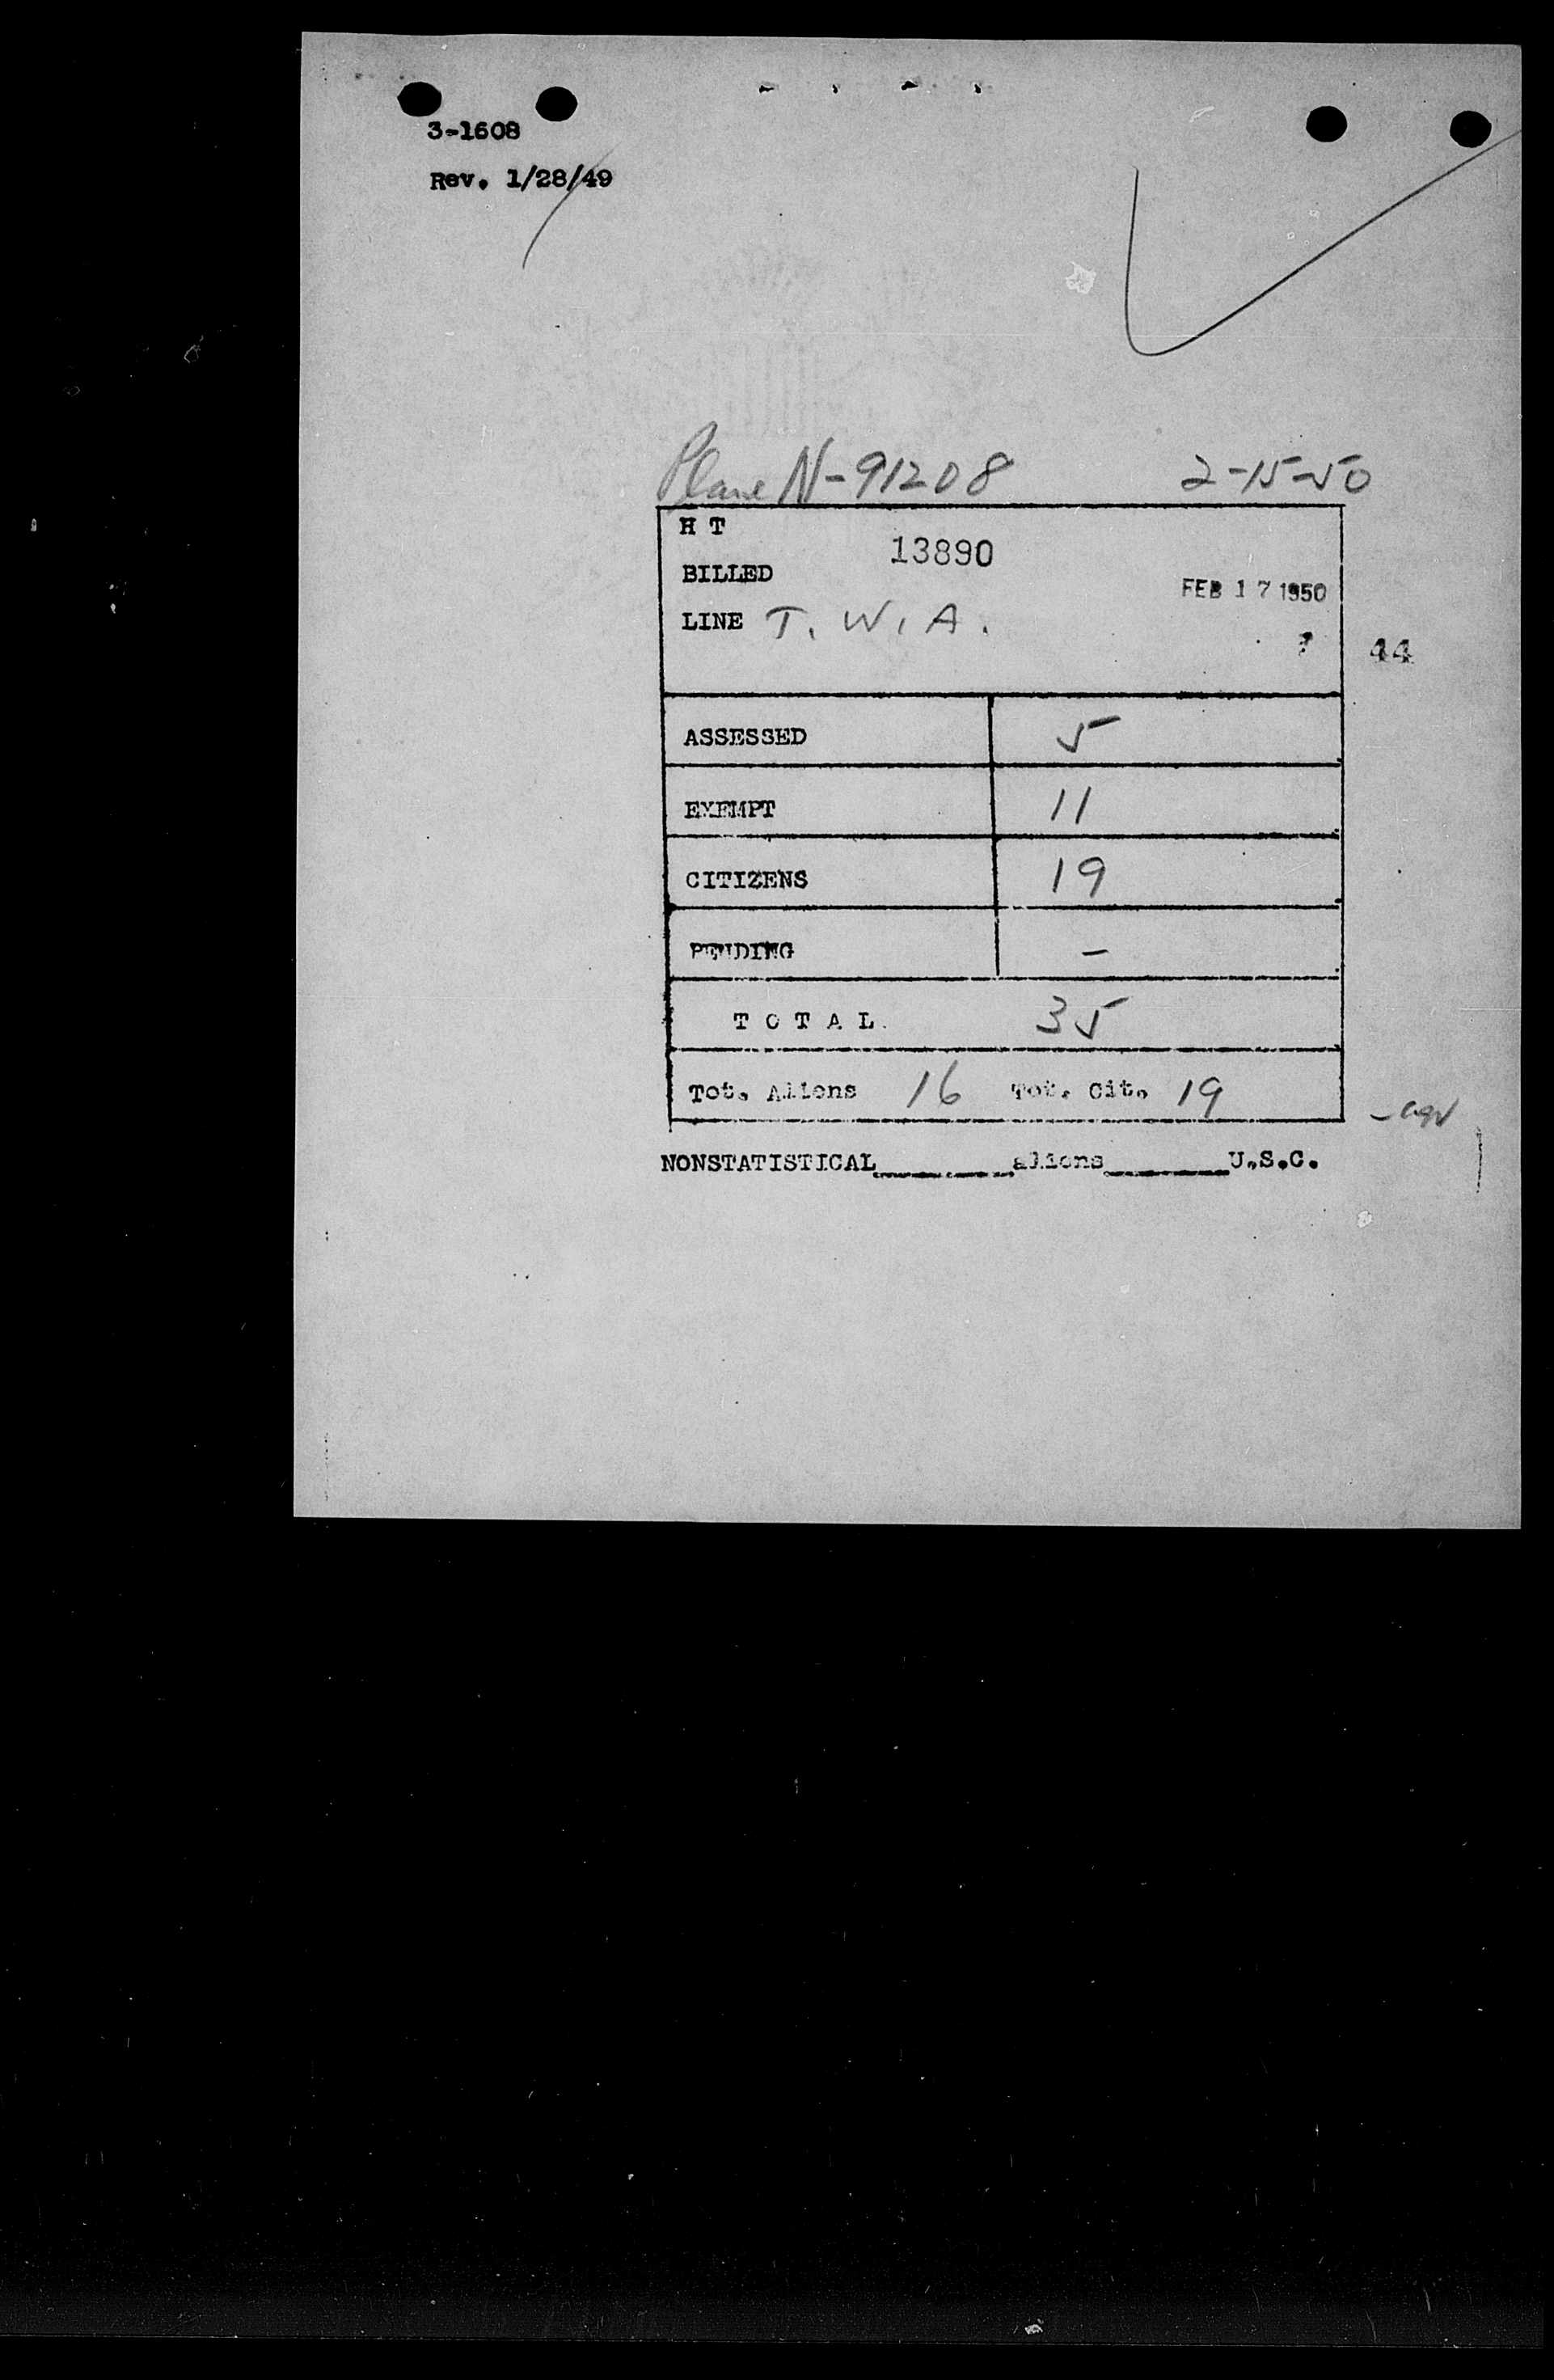 3-1608
Rev. 1/28/49
Plane N-91208 2-15-50
H T
13890
BILLED
FEB 17 1950
LINE T. W. A.
44
ASSESSED 5
EXEMPT 11
CITIZENS 19
PENDING -
TOTAL 35
Tot. Aliens 16 Tot. Cit. 19
NONSTATISTICAL aliens U.S.C.